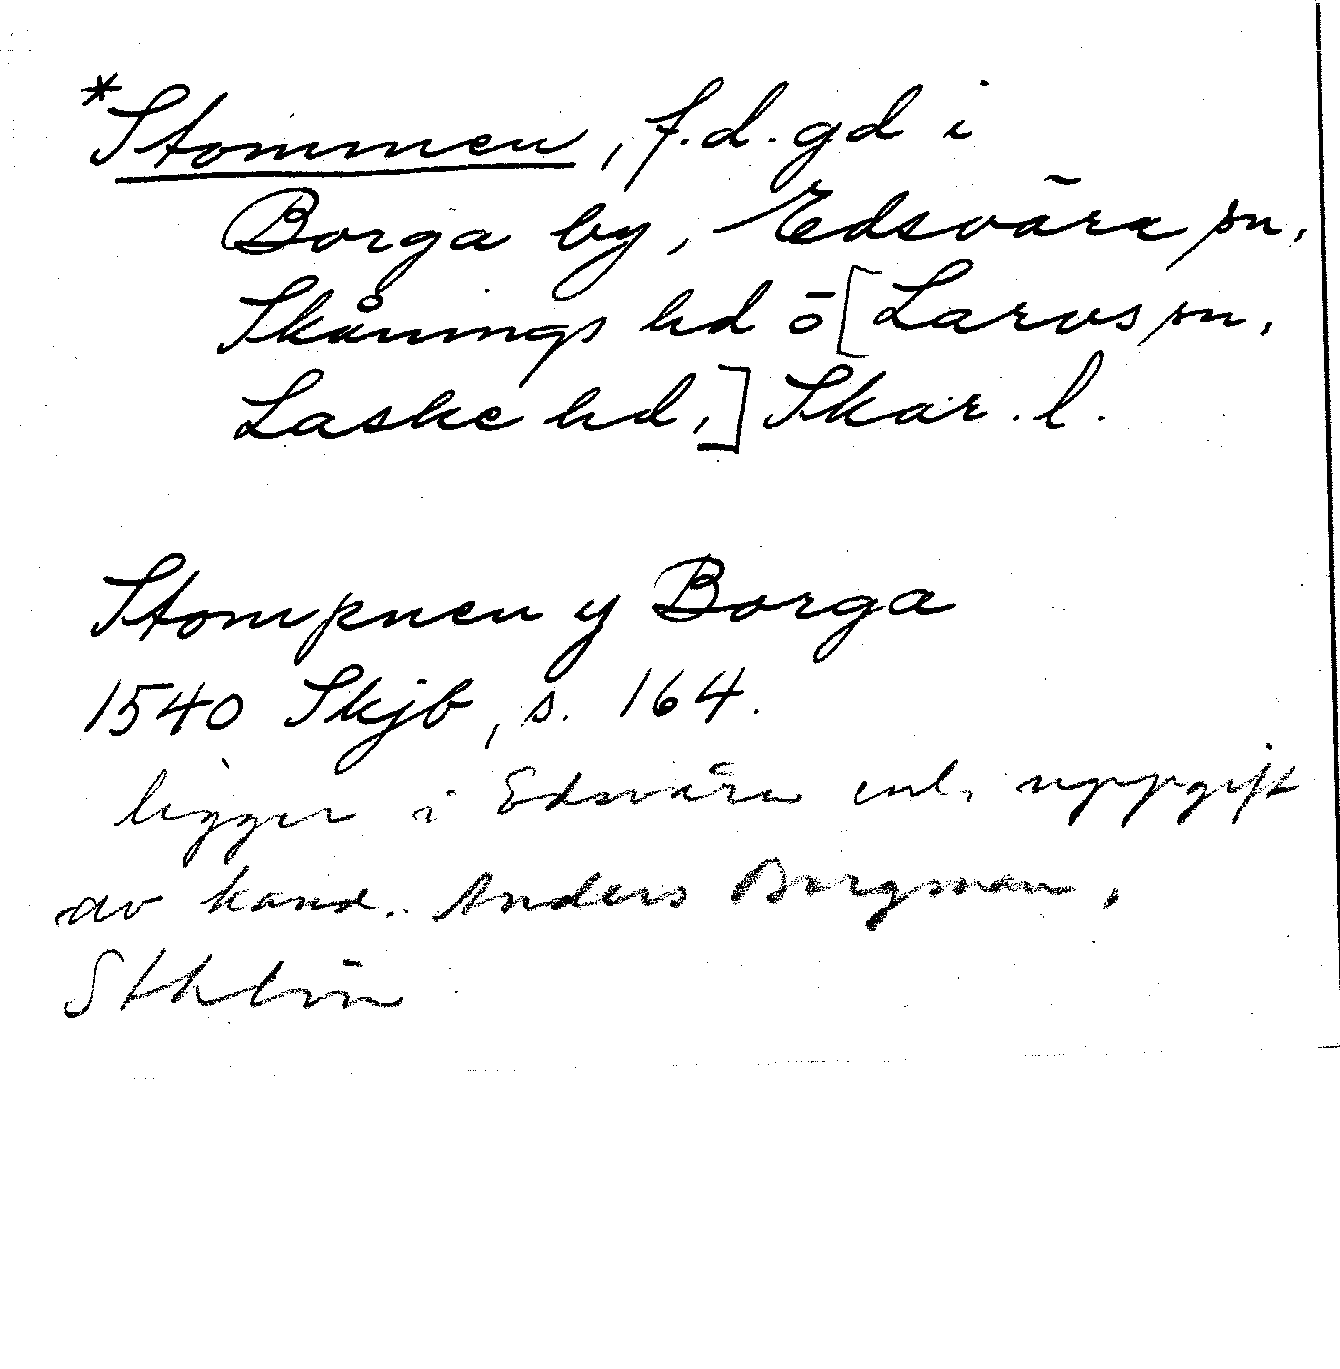 *Stommen, f.d. gd i
Borga by, Edsvära sn,
Skånings hd ö [Larvs sn,
Laske hd,] Skar. l.
Stompnen y Borga
1540 Skjb, s. 164.
ligger i Edsvära enl. uppgift
av kand. Anders Borgman,